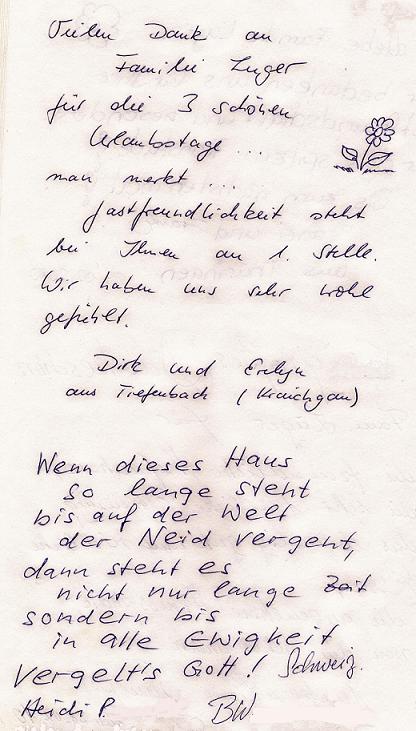 Vielen Dank an
Familie Luger
für die 3 schönen
Urlaubstage ...
man merkt ...
Gastfreundlichkeit steht
bei Ihnen an 1. Stelle.
Wir haben uns sehr wohl
gefühlt.
Dirk und Evelyn
aus Tiefenbach (Kraichgau)
Wenn dieses Haus
so lange steht
bis auf der Welt
der Neid vergeht,
dann steht es
nicht nur lange Zeit
sondern bis
in alle Ewigkeit
Vergelt's Gott! Schweiz.
Heidi P. BW.